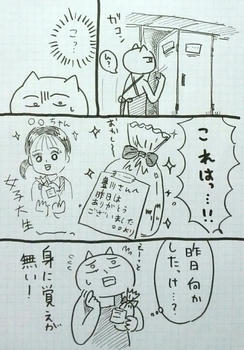 ガコン
ん?
こ?
これはっ…!!
おかし
豊川さんへ
昨日は
ありがとう
ございました
○○より
○○ちゃん
女子大生
昨日何か
したっけ…?
えーっと
身に覚えが
無い!